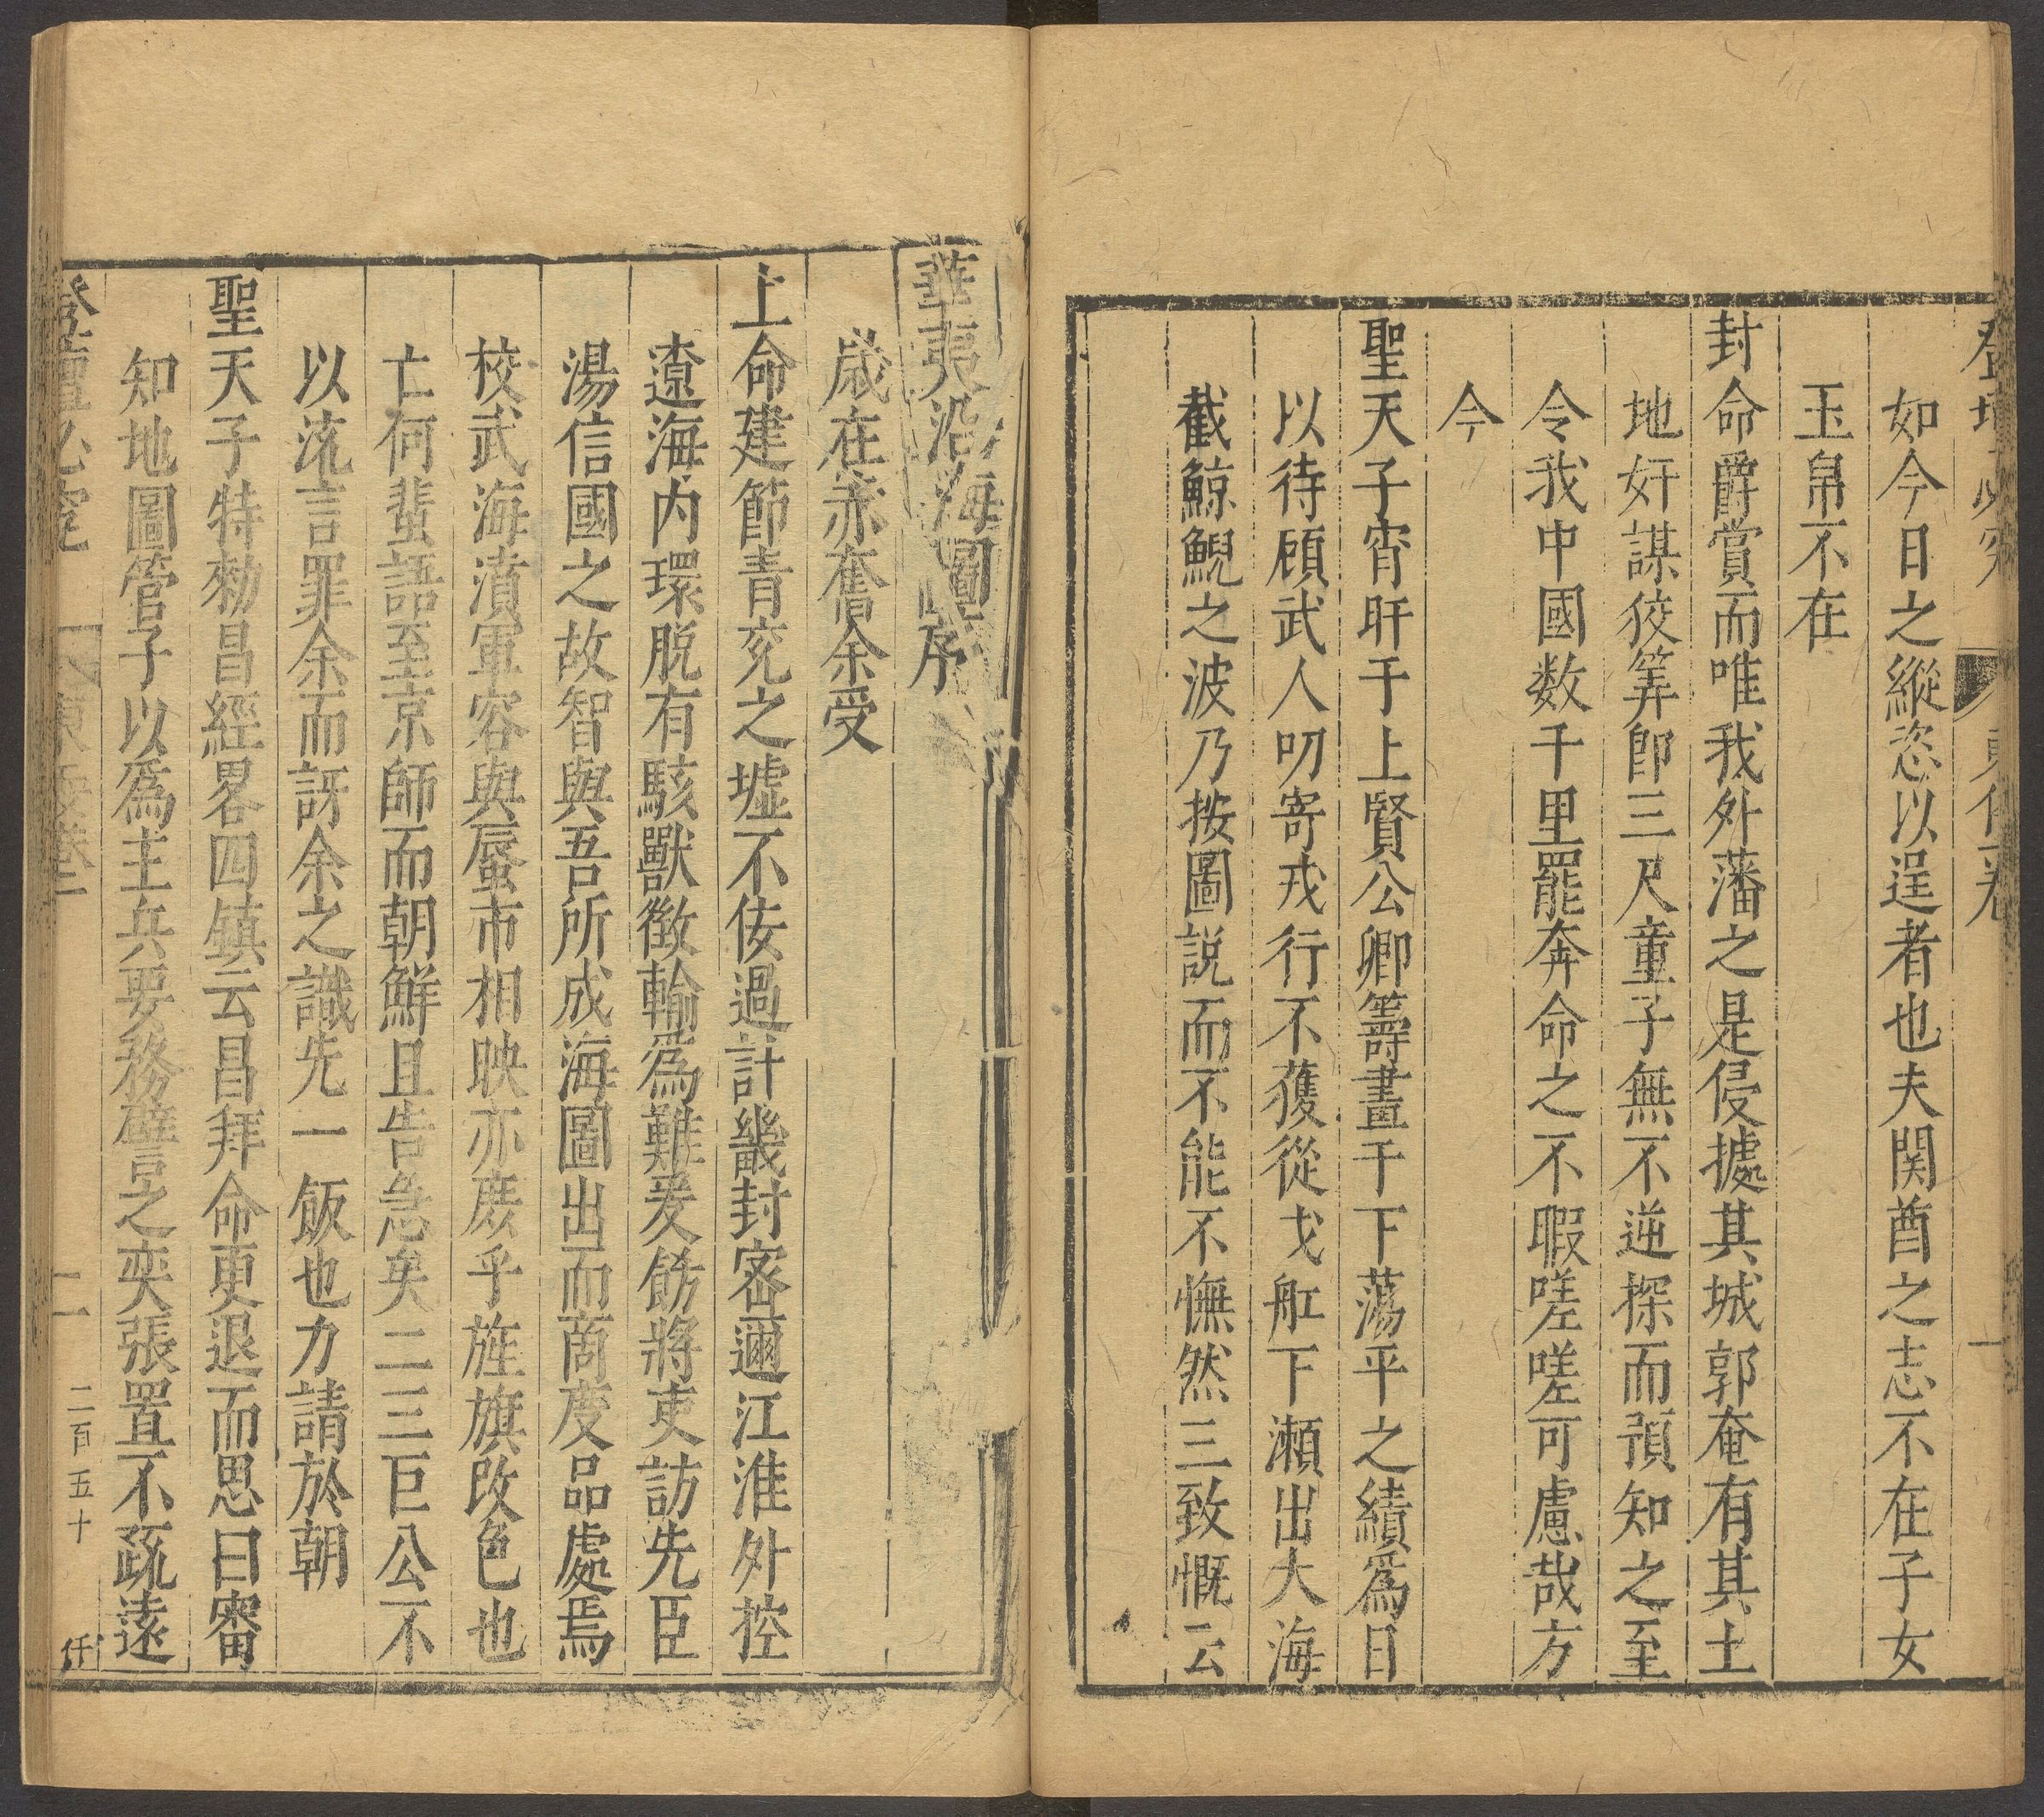 如今日之縱恣以逞者也夫関酋之志不在子女
玉帛不在
封命爵賞而唯我外藩之是侵據其城郭奄有其土
地奸謀狡筭即三尺童子無不逆探而預知之至
令我中國数千里罷奔命之不暇嗟嗟可慮哉方
今
聖天子宵旰于上賢公卿籌畫于下蕩平之績為日
以待顧武人叨寄戎行不獲從戈舡下瀬出大海
截鯨鯢之波乃按圖説而不能不憮然三致慨云
華夷沿海圖序
歳在赤奮余受
上命建節青兗之墟不佞過計畿封密邇江淮外控
遼海内環脱有駭獸徵輸為難爰飭將吏訪先臣
湯信國之故智與吾所成海圖出而商度品處焉
校武海濆軍容與蜃市相映亦庶乎旌旗改色也
亡何蜚語至京師而朝鮮且告急矣二三巨公不
以流言罪余而訝余之識先一飯也力請於朝
聖天子特勑昌經畧四鎮云昌拜命更退而思曰審
知地圖管子以為主兵要務譬之奕張置不疏遠
登壇必究
二
二百五十
仟